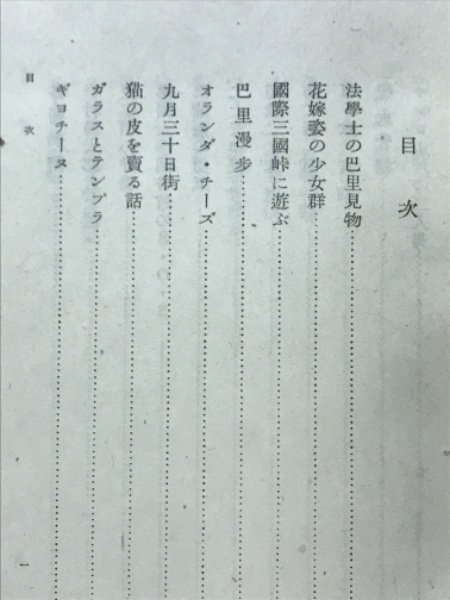 目次
法學士の巴里見物
花嫁姿の少女群
國際三國峠に遊ぶ
巴里漫步
オランダ・チーズ
九月三十日街
猫の皮を賣る話
ガラスとテンプラ
ギヨチーヌ
目次
一